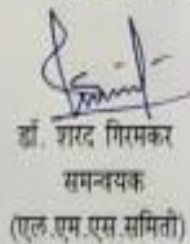 डॉ. शरद गिरमकर
समन्वयक
(एल.एम.एस.समिती)